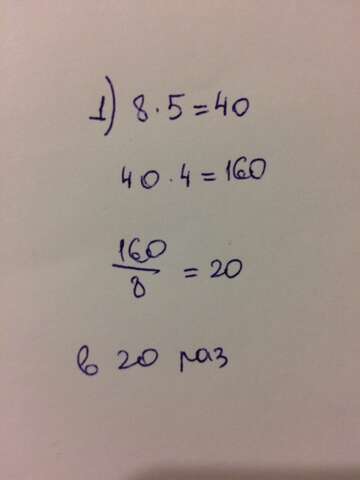 1) 8·5=40
40·4=160
160
8
=20
в 20 раз